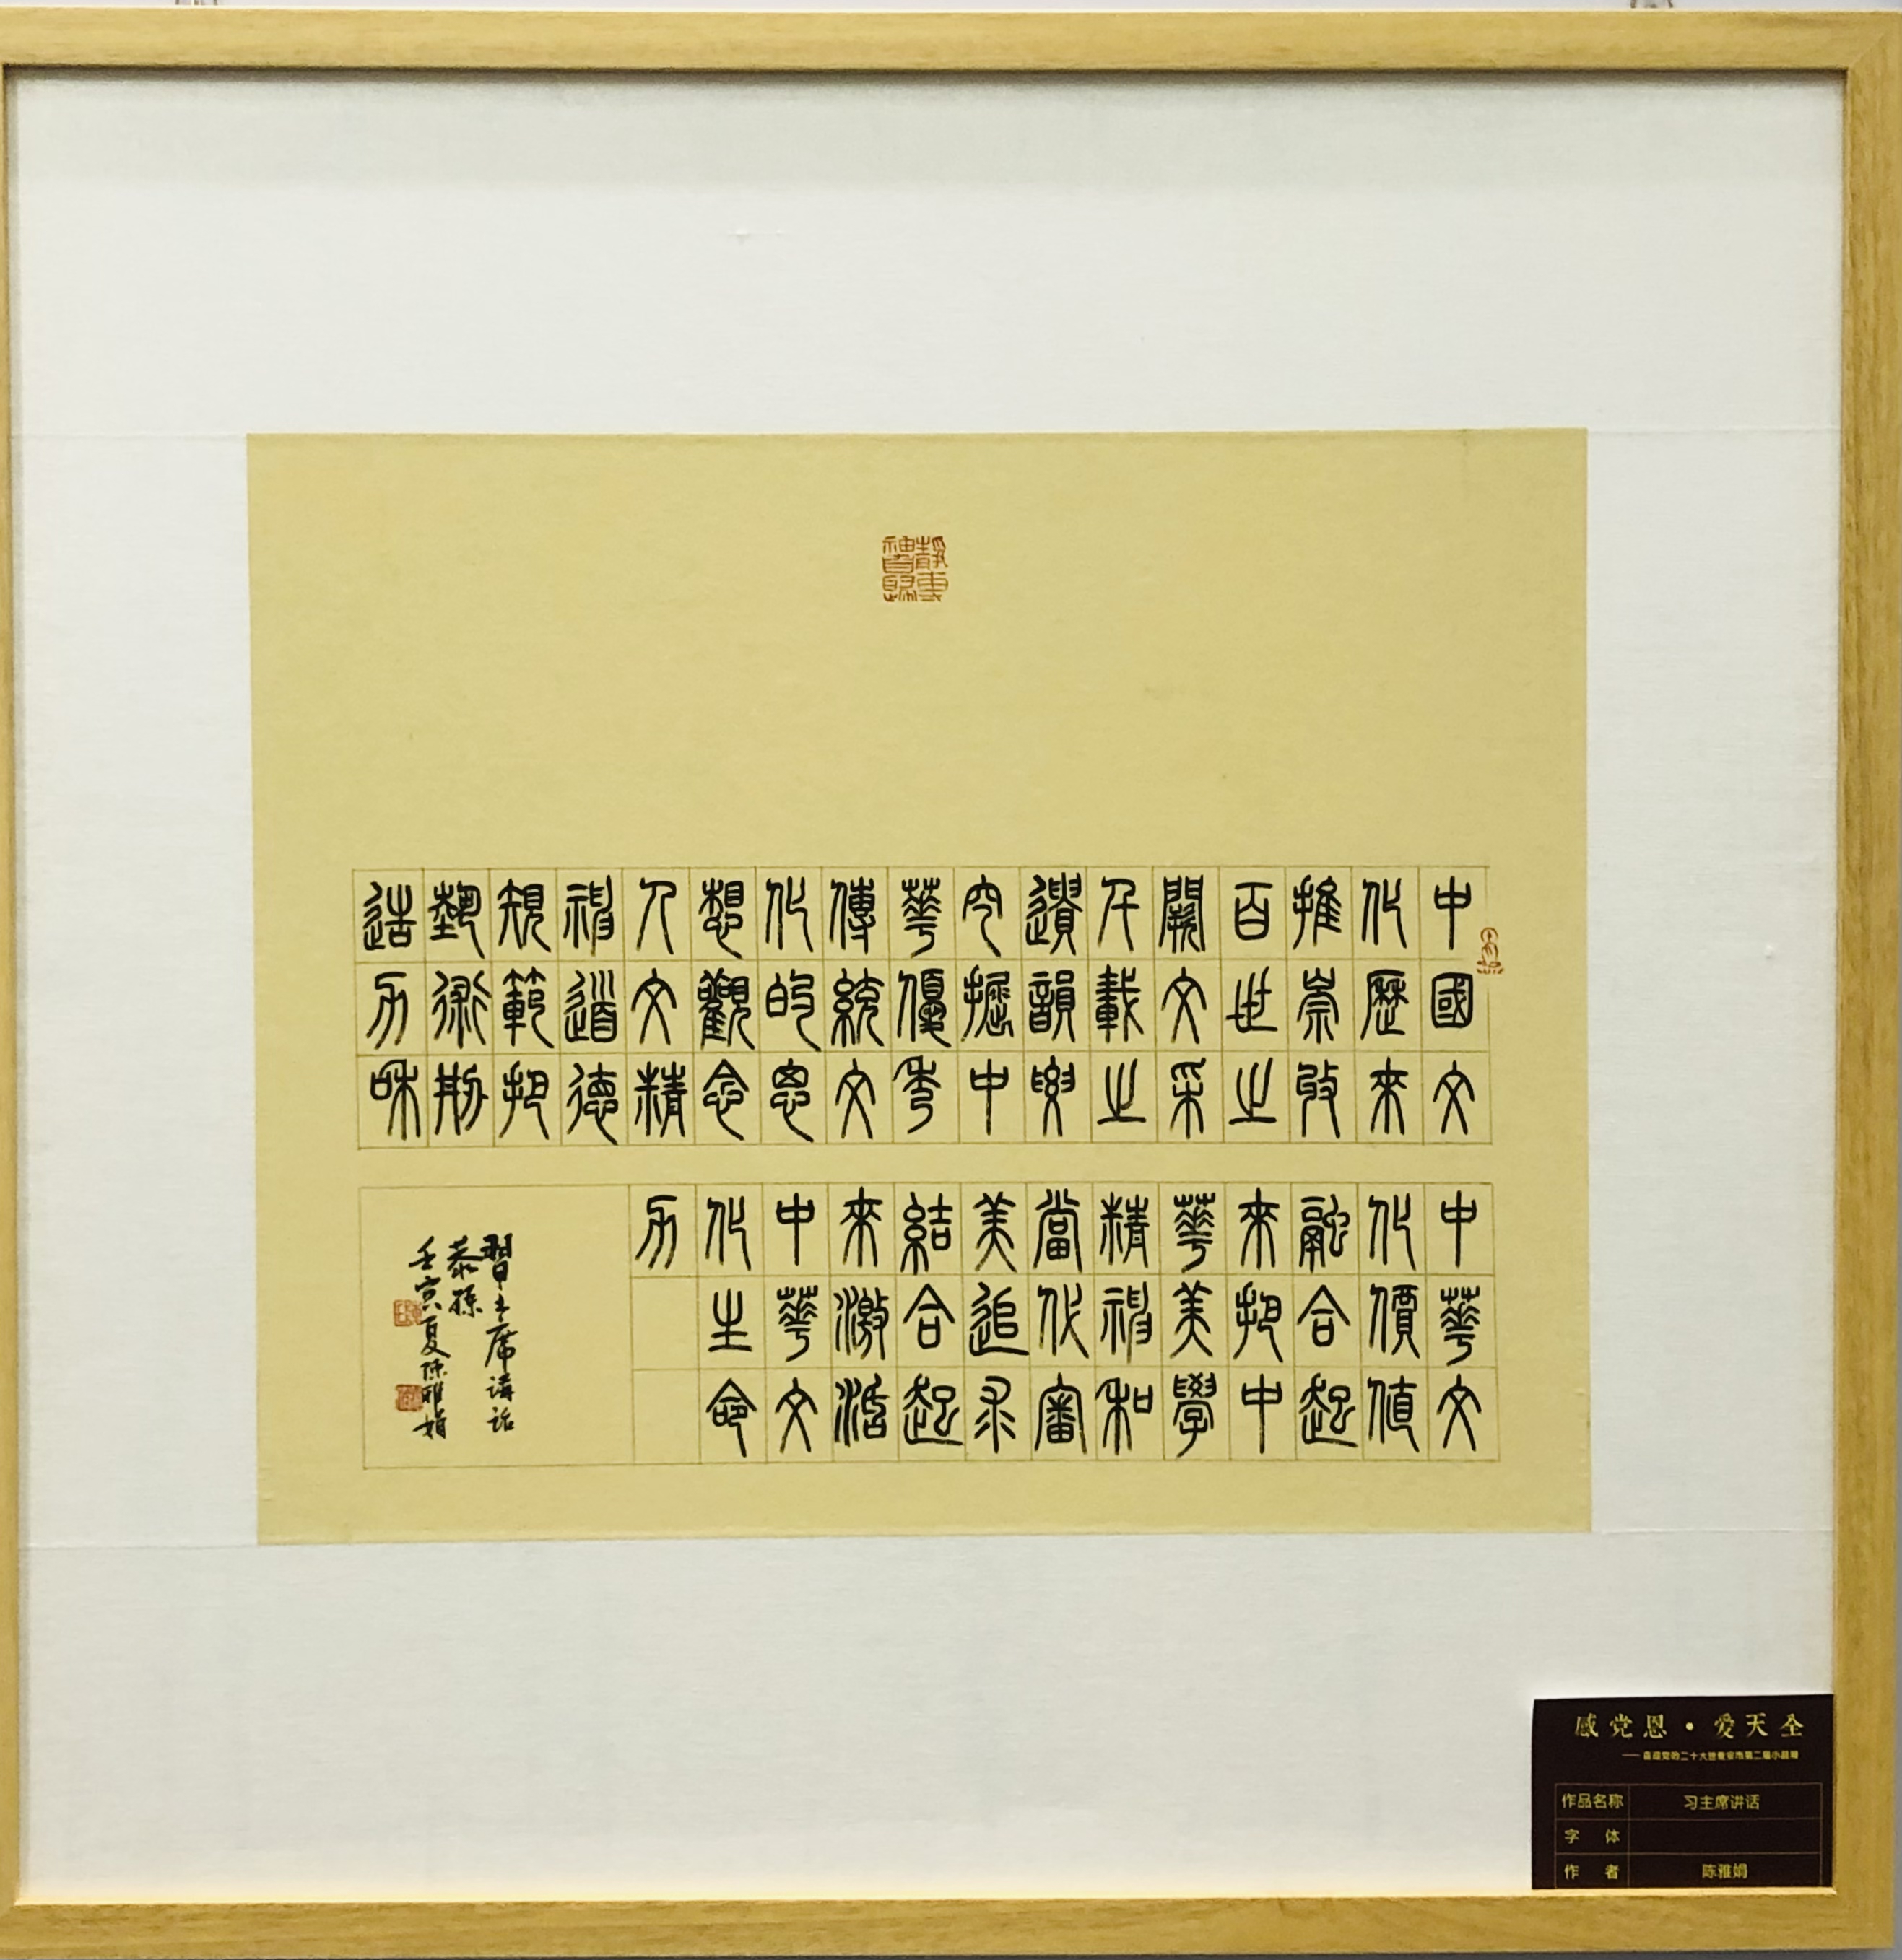 中國文
化歷來
推崇收
百世之
闕文采
千載之
遺韻要
穵掘中
華優秀
傳統文
化的思
想觀念
人文精
神道德
規範把
藝術刱
造力和
中華文
化價值
融合起
來把中
華美學
精神和
當代審
美追求
結合起
來激活
中華文
化生命
力
習主席講話
壬寅夏陳雅娟
感党恩·爱天全
——喜迎党的二十大暨雅安市第二届小品展
作品名称 习主席讲话
字 体
作 者 陈雅娟